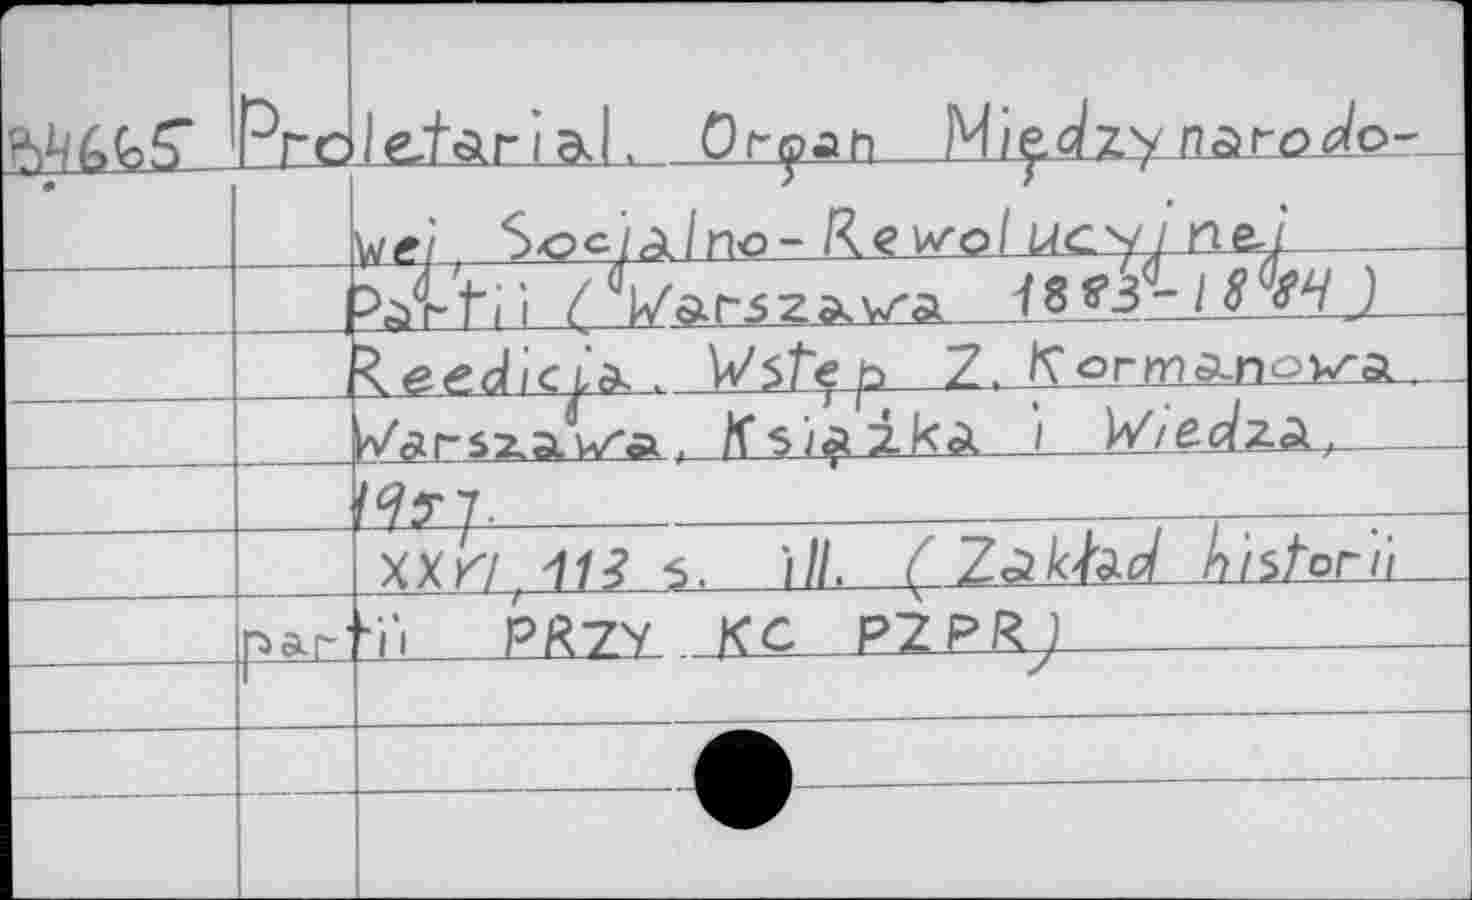 B4665 Proletarial. Organ Międzynarodo-
wej, Socjalno-Rewolucyjnej
Partii (Warszawa 1883-1884)
Reedicja. Wstęp Z. Kormanowa.
Warszawa, Książka i Wiedza,
1957.
XXVI, 113 s. ill. (Zakład historii
partii PRZY KC PZPR)